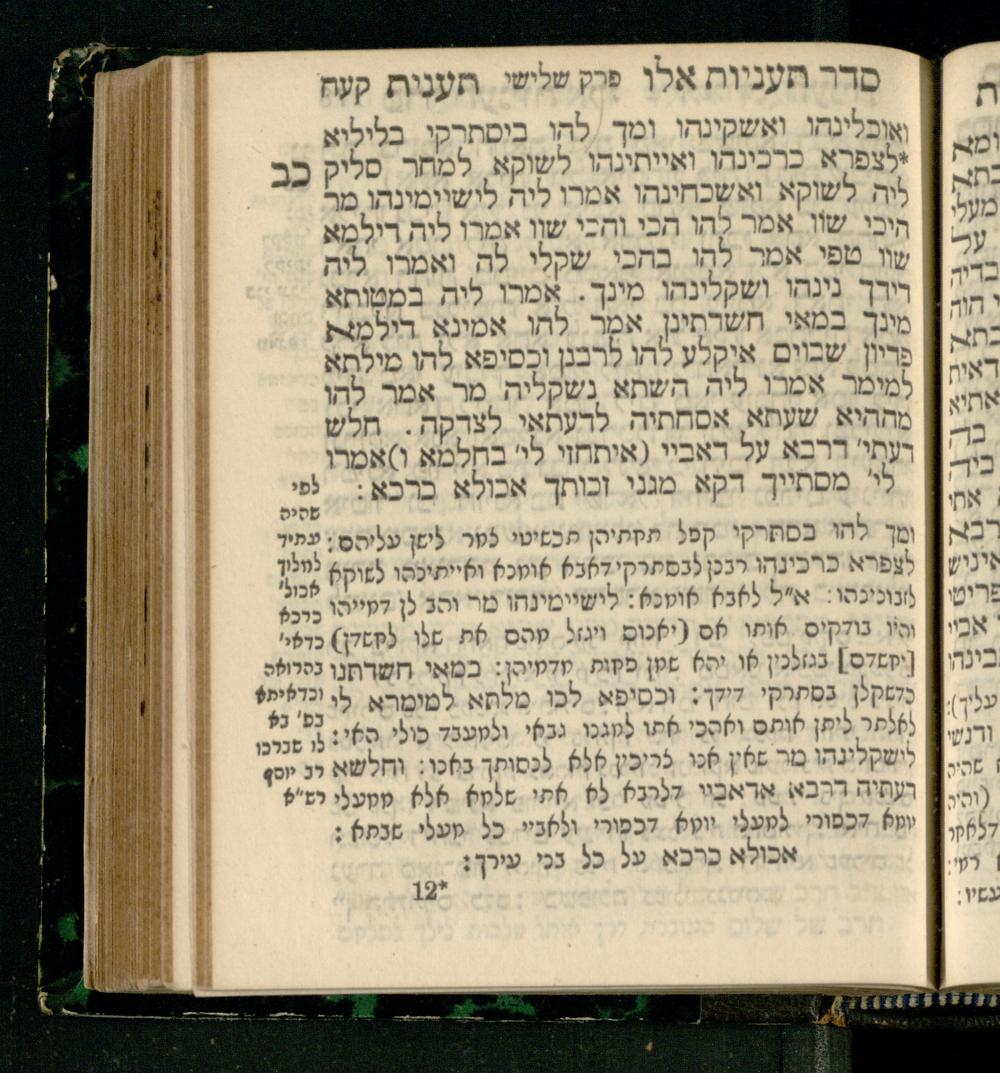 סדר תעניות אלו פרק שלישי תענית קעח
ואוכלינהו ואשקינהו ומך להו ביסתרקי בליליא
*לצפרא כרכינהו ואייתינהו לשוקא למחר סליק כב
ליה לשוקא ואשכחינהו אמרו ליה לישיימינהו מר
היכי שוו אמר להו הכי והכי שוו אמרו ליה דילמא
שוו טפי אמר להו בהכי שקלי לה ואמרו ליה
דידך נינהו ושקלינהו מינך. אמרו ליה במטותא
מינך במאי חשדתינן אמר להו אמינא דילמא
פדיון שבוים איקלע להו לרבנן וכסיפא להו מילתא
למימר אמרו ליה השתא נשקליה מר אמר להו
מההיא שעתא אסחתיה לדעתאי לצדקה. חלש
דעתי' דרבא על דאביי (איתחזי לי' בחלמא ו)אמרו
לי' מסתייך דקא מגני זכותך אכולא כרכא:
ומך להו בסתרקי קפל תחתיהן תכשיטי למר לישן עליהם:
לצפרא כרכינהו רבנן לבסתרקי דאבא אומנא ואייתינהו לשוקא
לזבונינהו: א"ל לאבא אומנא: לישיימינהו מר והב לן דמייהו
והיו בודקים אותו אם (יאכום ויגזל מהם את שלו לחשדן)
[יחשדם] בגזלנין או יהא שמן פחות מדמיהן: במאי חשדתנו
כדשקלן בסתרקי דידך: וכסיפא לכו מלתא למימרא לי
לאלתר ליתן אותם ואהכי אתו למגנו גבאי ולמעבד כולי האי:
לישקלינהו מר שאין אנו צריכין אלא לנסותך באנו: וחלשא
דעתיה דרבא אדאביי דלרבא לא אתי שלמא אלא ממעלי
יומא דכפורי למעלי יומא דכפורי ולאביי כל מעלי שבתא:
אכולא כרכא על כל בני עירך:
לפי
שהיה
עתיד
למלוך
אכול'
כרכא
כדאי'
בהרואה
וכדאיתא
בפ' בא
לו שברכו
רב יוסף
רש"א
12*